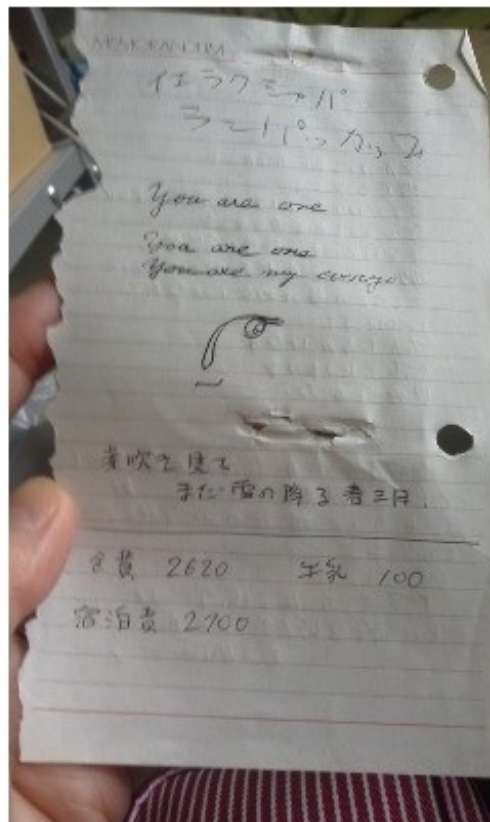 MEMORANDUM
イエラクシャパ
ラニパッカップ
You are one
You are one
You are my
芽吹を見て
また雪の降る春三月.
食費 2620 牛乳 100
宿泊費 2700